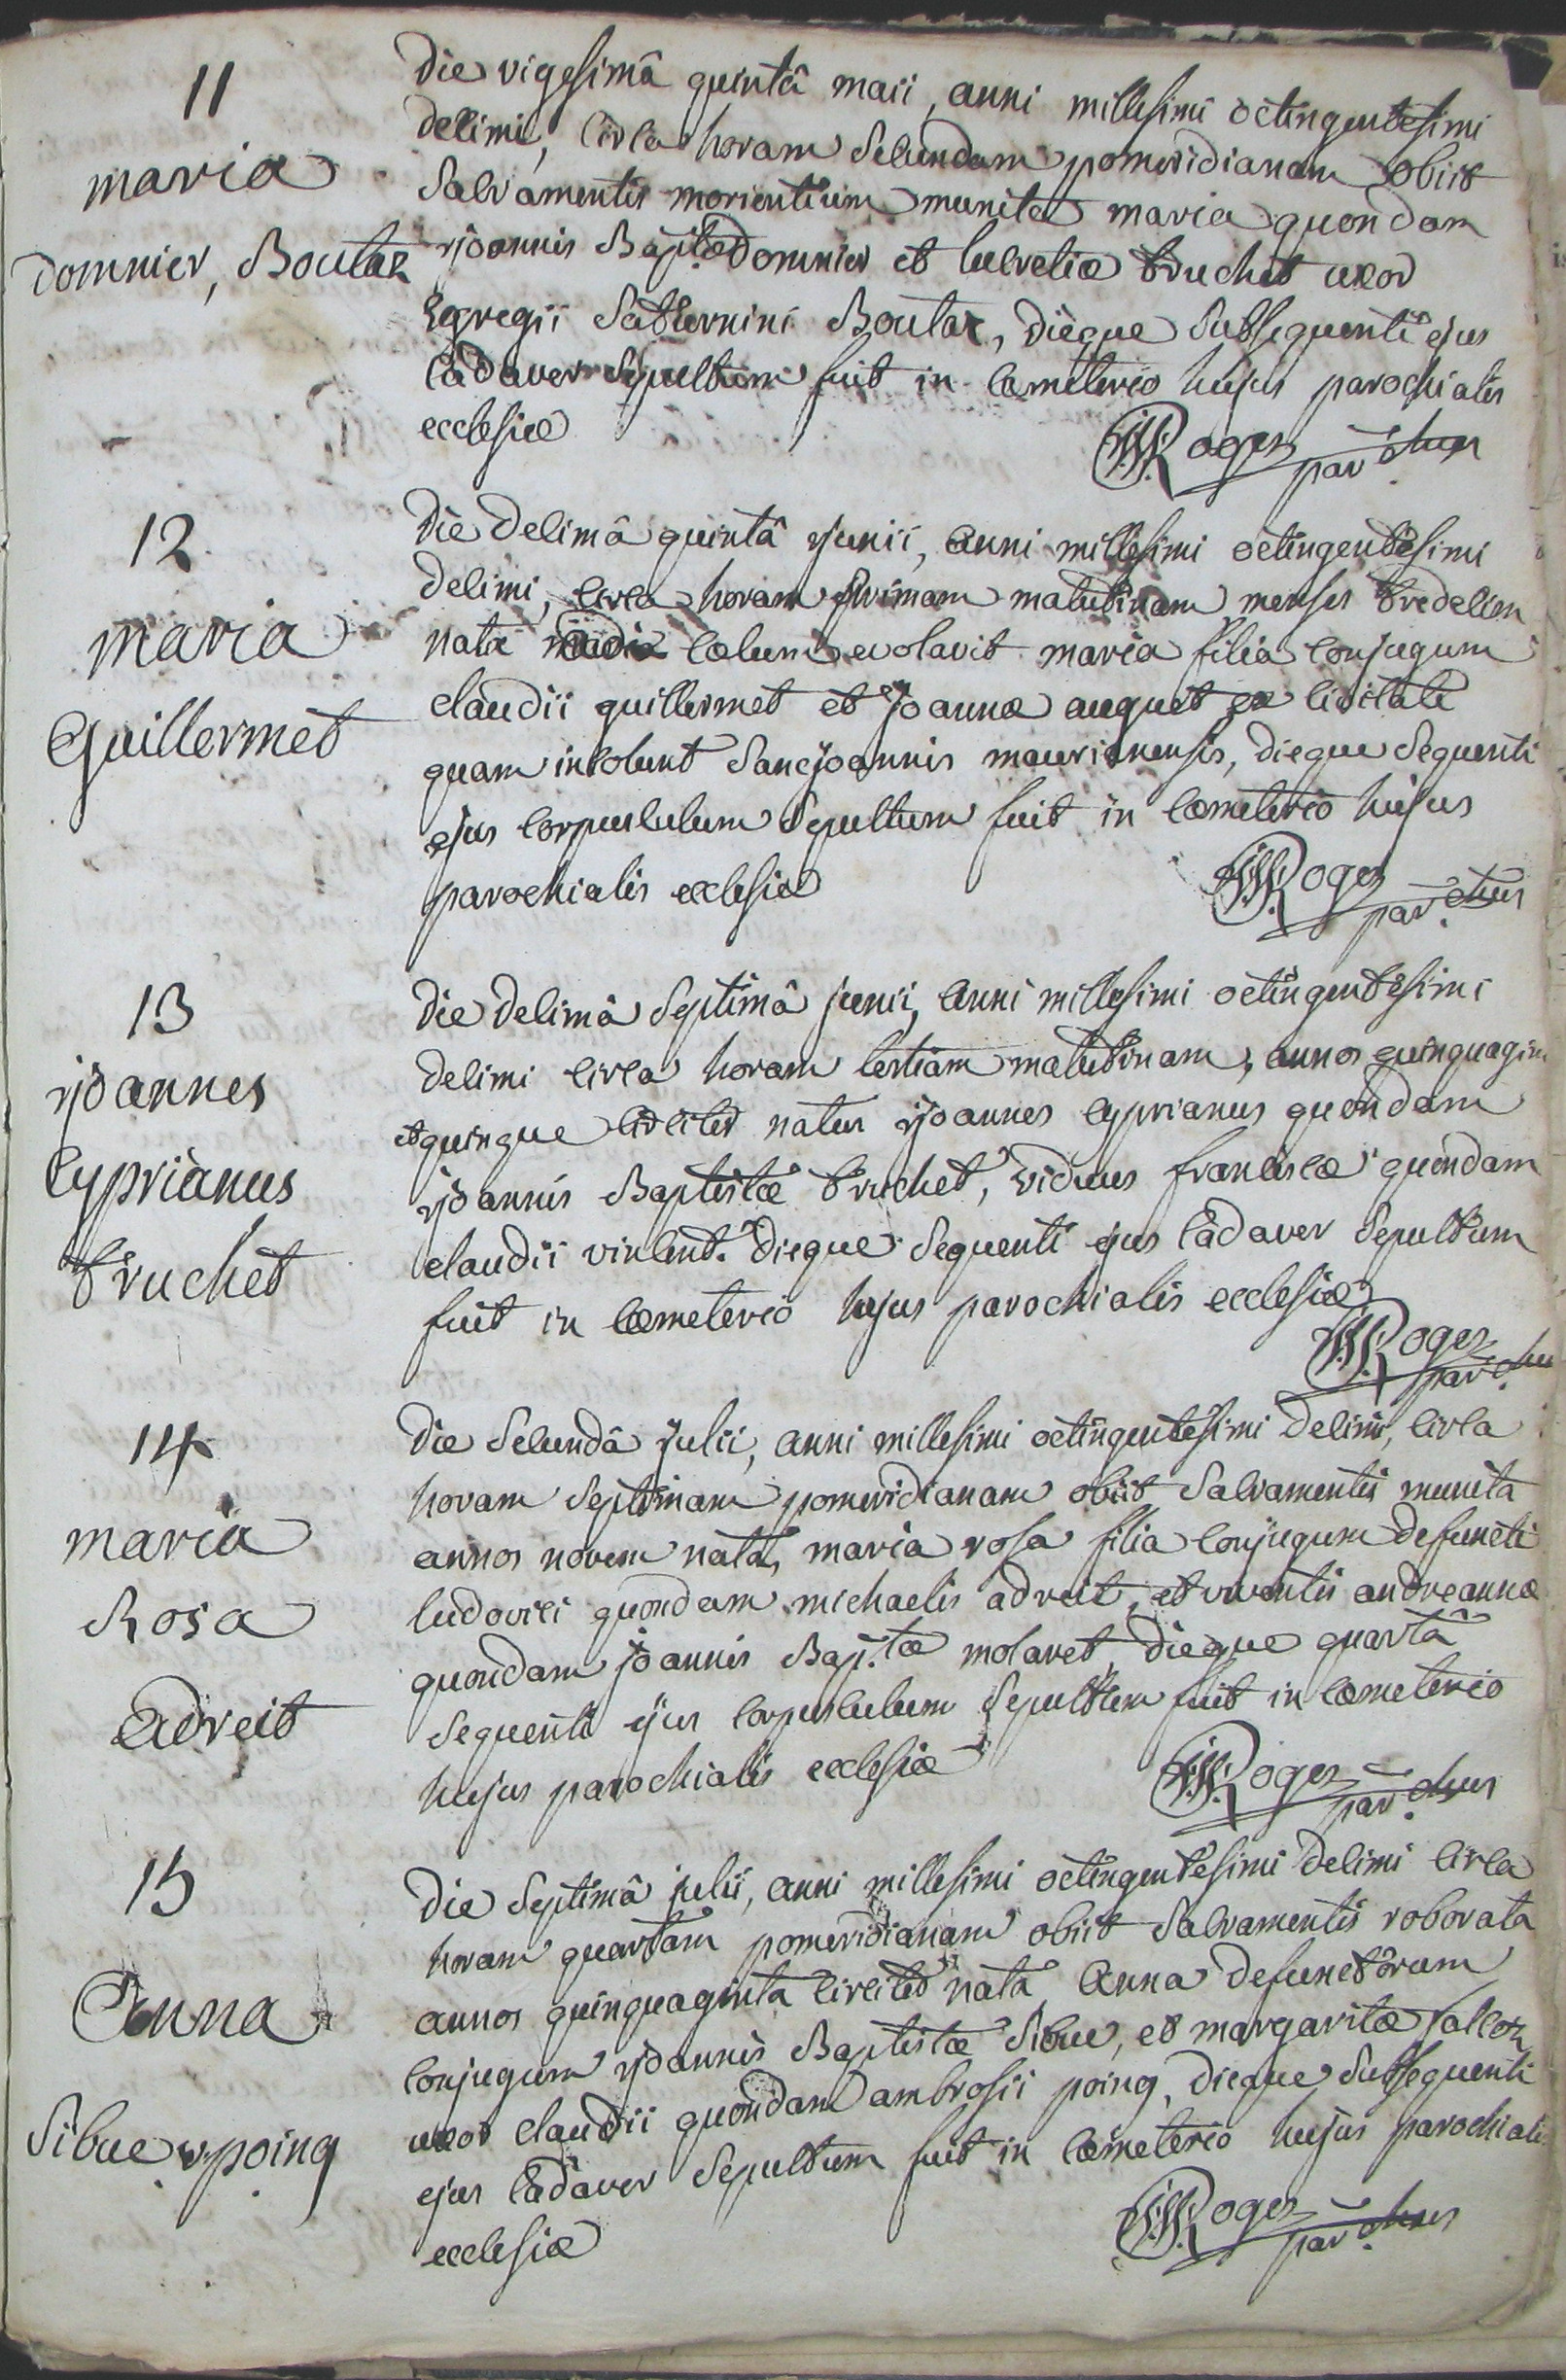 11
maria
domnier, Boutaz
Die vigesimâ quintâ maii, anni millesimi octingentesimi
decimi, circa horam secundam pomeridianam obiit
sacramentis morientium munita maria quondam
joannis Bap.tæ domnier et lucretiæ truchet uxor
Egregii Saturnini Boutaz, dieque subsequenti ejus
cadaver sepultum fuit in cœmeterio hujus parochialis
ecclesiæ
Roger par.chus
12
maria
Guillermet
Die decimâ quintâ junii, anni millesimi octingentesimi
decimi, circa horam primam matutinam menses tredecim
nata cœlum evolavit maria filia conjugum
claudii guillermet et joannæ auguet ex civitate
quam incolunt Sancjoannis maurianensis, dieque sequenti
ejus corpusculum sepultum fuit in cœmeterio hujus
parochialis ecclesiæ
Roger par.chus
13
joannes
Cyprianus
truchet
Die decimâ septimâ junii, anni millesimi octingentesimi
decimi circa horam tertiam matutinam, annos quinquagin
et quinque circiter natus joannes cyprianus quondam
joannis Baptistæ truchet, viduus franciscæ quondam
claudii vincent. Dieque sequenti ejus cadaver sepultum
fuit in cœmeterio hujus parochialis ecclesiæ
Roger par.chu
14
maria
Rosa
adreit
Die secundâ julii, anni millesimi octingentesimi decimi, circa
horam septimam pomeridianam obiit sacramentis munita
annos novem nata, maria rosa filia conjugum defuncti
ludovici quondam michaelis adreit, et viventis andreannæ
quondam joannis Bap.tæ molaret, dieque quartâ
sequenti ejus corpusculum sepultum fuit in cœmeterio
hujus parochialis ecclesiæ
Roger par.chus
15
Anna
Sibue v. poing
Die septimâ julii, anni millesimi octingentesimi decimi circa
horam quartam pomeridianam obiit sacramentis roborata
annos quinquaginta circiter nata Anna defunctorum
conjugum joannis Baptistæ Sibue, et margaritæ falcoz
uxor claudii quondam ambrosii poing, dieque subsequenti
ejus cadaver sepultum fuit in cœmeterio hujus parochialis
ecclesiæ
Roger par.chus